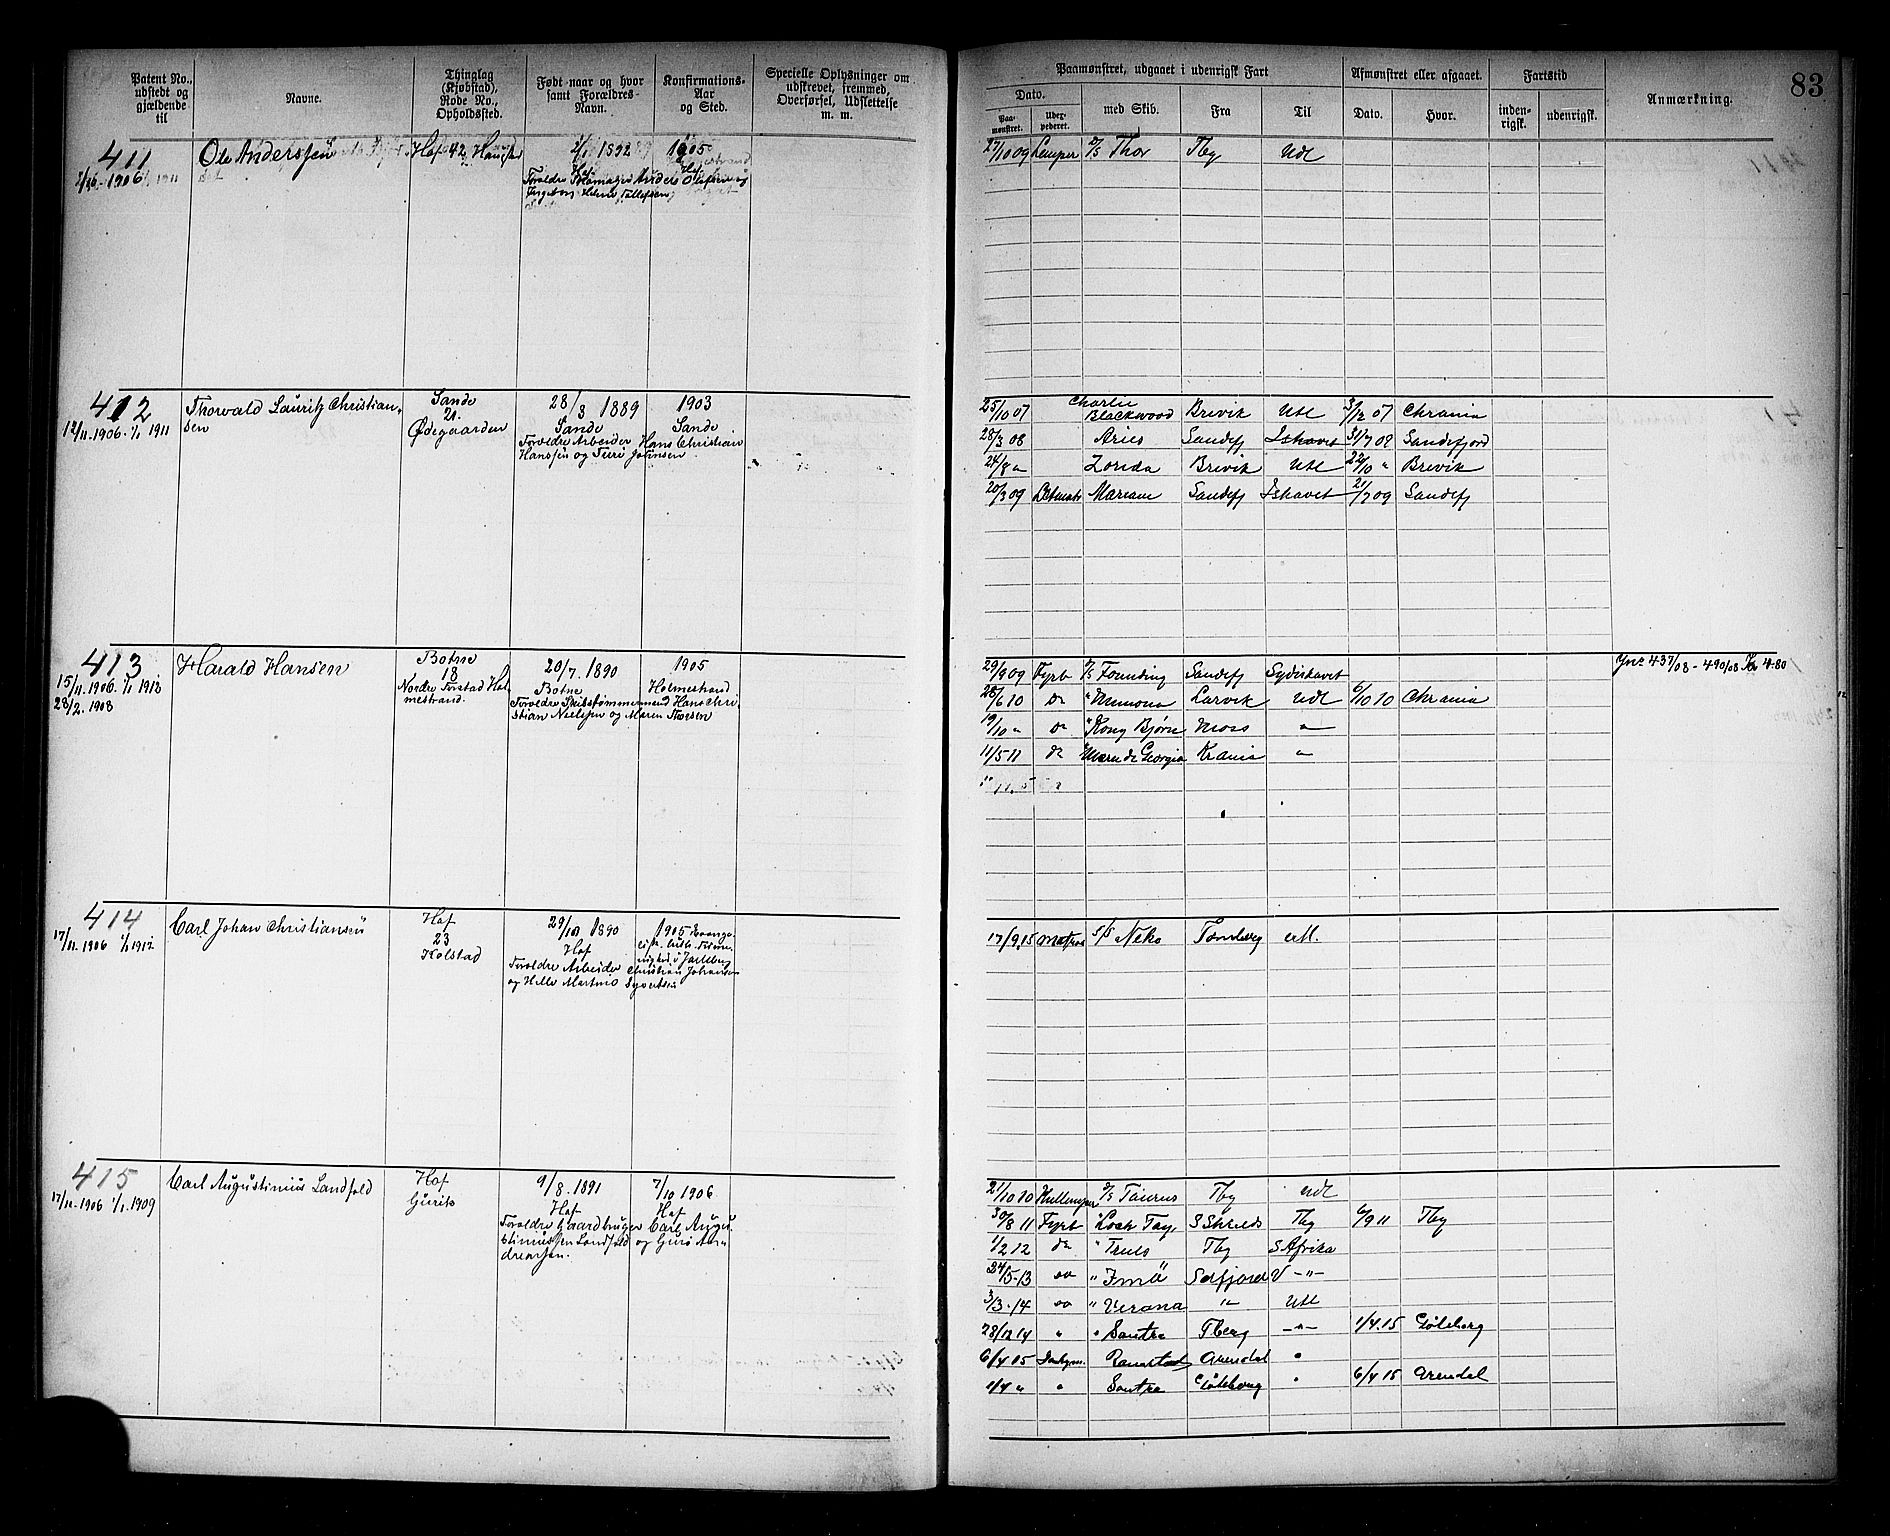 Patent No., udstedt og gjældende til
Navne.
Thinglag (Kjøbstad), Rode No., Opholdssted.
Født naar og hvor samt Forældres Navn.
Konfirmations-Aar og Sted.
Specielle Oplysninger om udskrevet, fremmed, Overførsel, Udslettelse m. m.
Paamønstret, udgaaet i udenrigsk Fart
Dato.
Paamønstret.
med Skib.
Fra
Til
Afmønstret eller afgaaet.
Dato.
Hvor.
Fartstid
indenrigsk.
udenrigsk.
Anmærkning.
83
411
Ole Anderssen
Hof 42
2/1 1892
1905
Hof
27/10 09 Lemper D/S Thor Tbg Udl
412
12/11.1906. 1/1 1911
Thorvald Lauritz Christian-
sen
Sande
21.
Ødegaarden
28/3 1889
Sande
Forældre Arbeider Hans Christian
Hanssen og Turi Johnsen
1903
Sande
25/10 07 Charlie Blackwood Brevik Utl 3/12 07 Chrania
28/3 08 Aries Sandefj Ishavet 31/7 08 Sandefjord
24/8 " Zorida Brevik Utl 22/10 " Brevik
20/3 09 Letmatr Mariane Sandefj Ishavet 21/7 09 Sandefj
413
15/11.1906. 1/1 1912
28/2. 1908
Harald Hansen
Botne
18
Nordre Torstad Hol-
mestrand.
20/7. 1890
Botne
Forældre Skibstømmermand Hans Chri
stian Nielsen og Maren Thorsen
1905
Holmestrand
29/9 09 Fyrb D/S Founding Sandefj Sydishavet
28/6 10 do " Memona Larvik Udl 6/10 10 Chrania
19/10 " do " Kong Bjørn Moss "
11/5 11 do Mare di Georgia Krania "
Jnr 437/08 - 490/08 Kr 4-80
414
17/11.1906 1/1 1912.
Carl Johan Christiansen
Hof
23
Kolstad
29/10 1890
Hof
Forældre Arbeider Christian Johansen
og Helle Martine Syvertsen
1905
17/9.15 Matros S/S Neko Tønsberg utl.
415
17/11.1906 1/1.1909
Carl Augustinius Landfald
Hof
Gurik
9/8.1891
Hof
Forældre Gaardbruger Carl Augu
stiniussen Landfald og Guro An
dreassen.
7/10 1906
Hof
21/10 10 Kullemper D/S Taurus Tbg Udl
30/8 11 Fyrb " Loch Tay, S Shields Tbg 6/9 11 Tbg
1/2 12 do " Truls Tbg S Afrika
24/5-13 do " Imo Sdfjord V -"-
3/3-14 do " Verona -"- Utl
28/12 14 " " Santra Tberg -"- 1/4.15 Gøteborg
6/4 15 Donkym. Arendal "
1/4 " " Santra Gøteborg " 6/4 15 Arendal